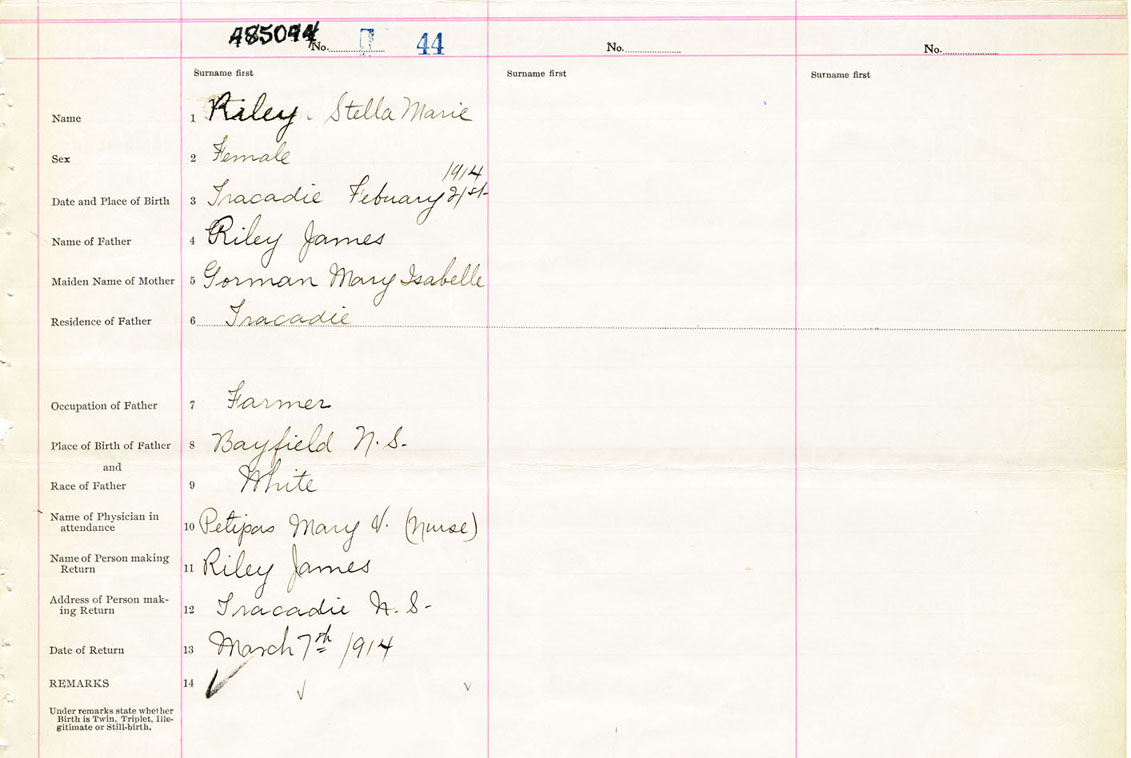 485094 No. 44 No. No.
Surname first Surname first Surname first
Name 1 Riley. Stella Marie
Sex 2 Female
1914
Date and Place of Birth 3 Tracadie Febuary 21st
Name of Father 4 Riley James
Maiden Name of Mother 5 Gorman Mary Isabelle
Residence of Father 6 Tracadie
Occupation of Father 7 Farmer
Place of Birth of Father 8 Bayfield N.S.
and
Race of Father 9 White
Name of Physician in
attendance 10 Petipas Mary V. (Nurse)
Name of Person making
Return 11 Riley James
Address of Person mak-
ing Return 12 Tracadie N.S.
Date of Return 13 March 7th 1914
REMARKS 14
Under remarks state whether
Birth is Twin, Triplet, Ille-
gitimate or Still-birth.